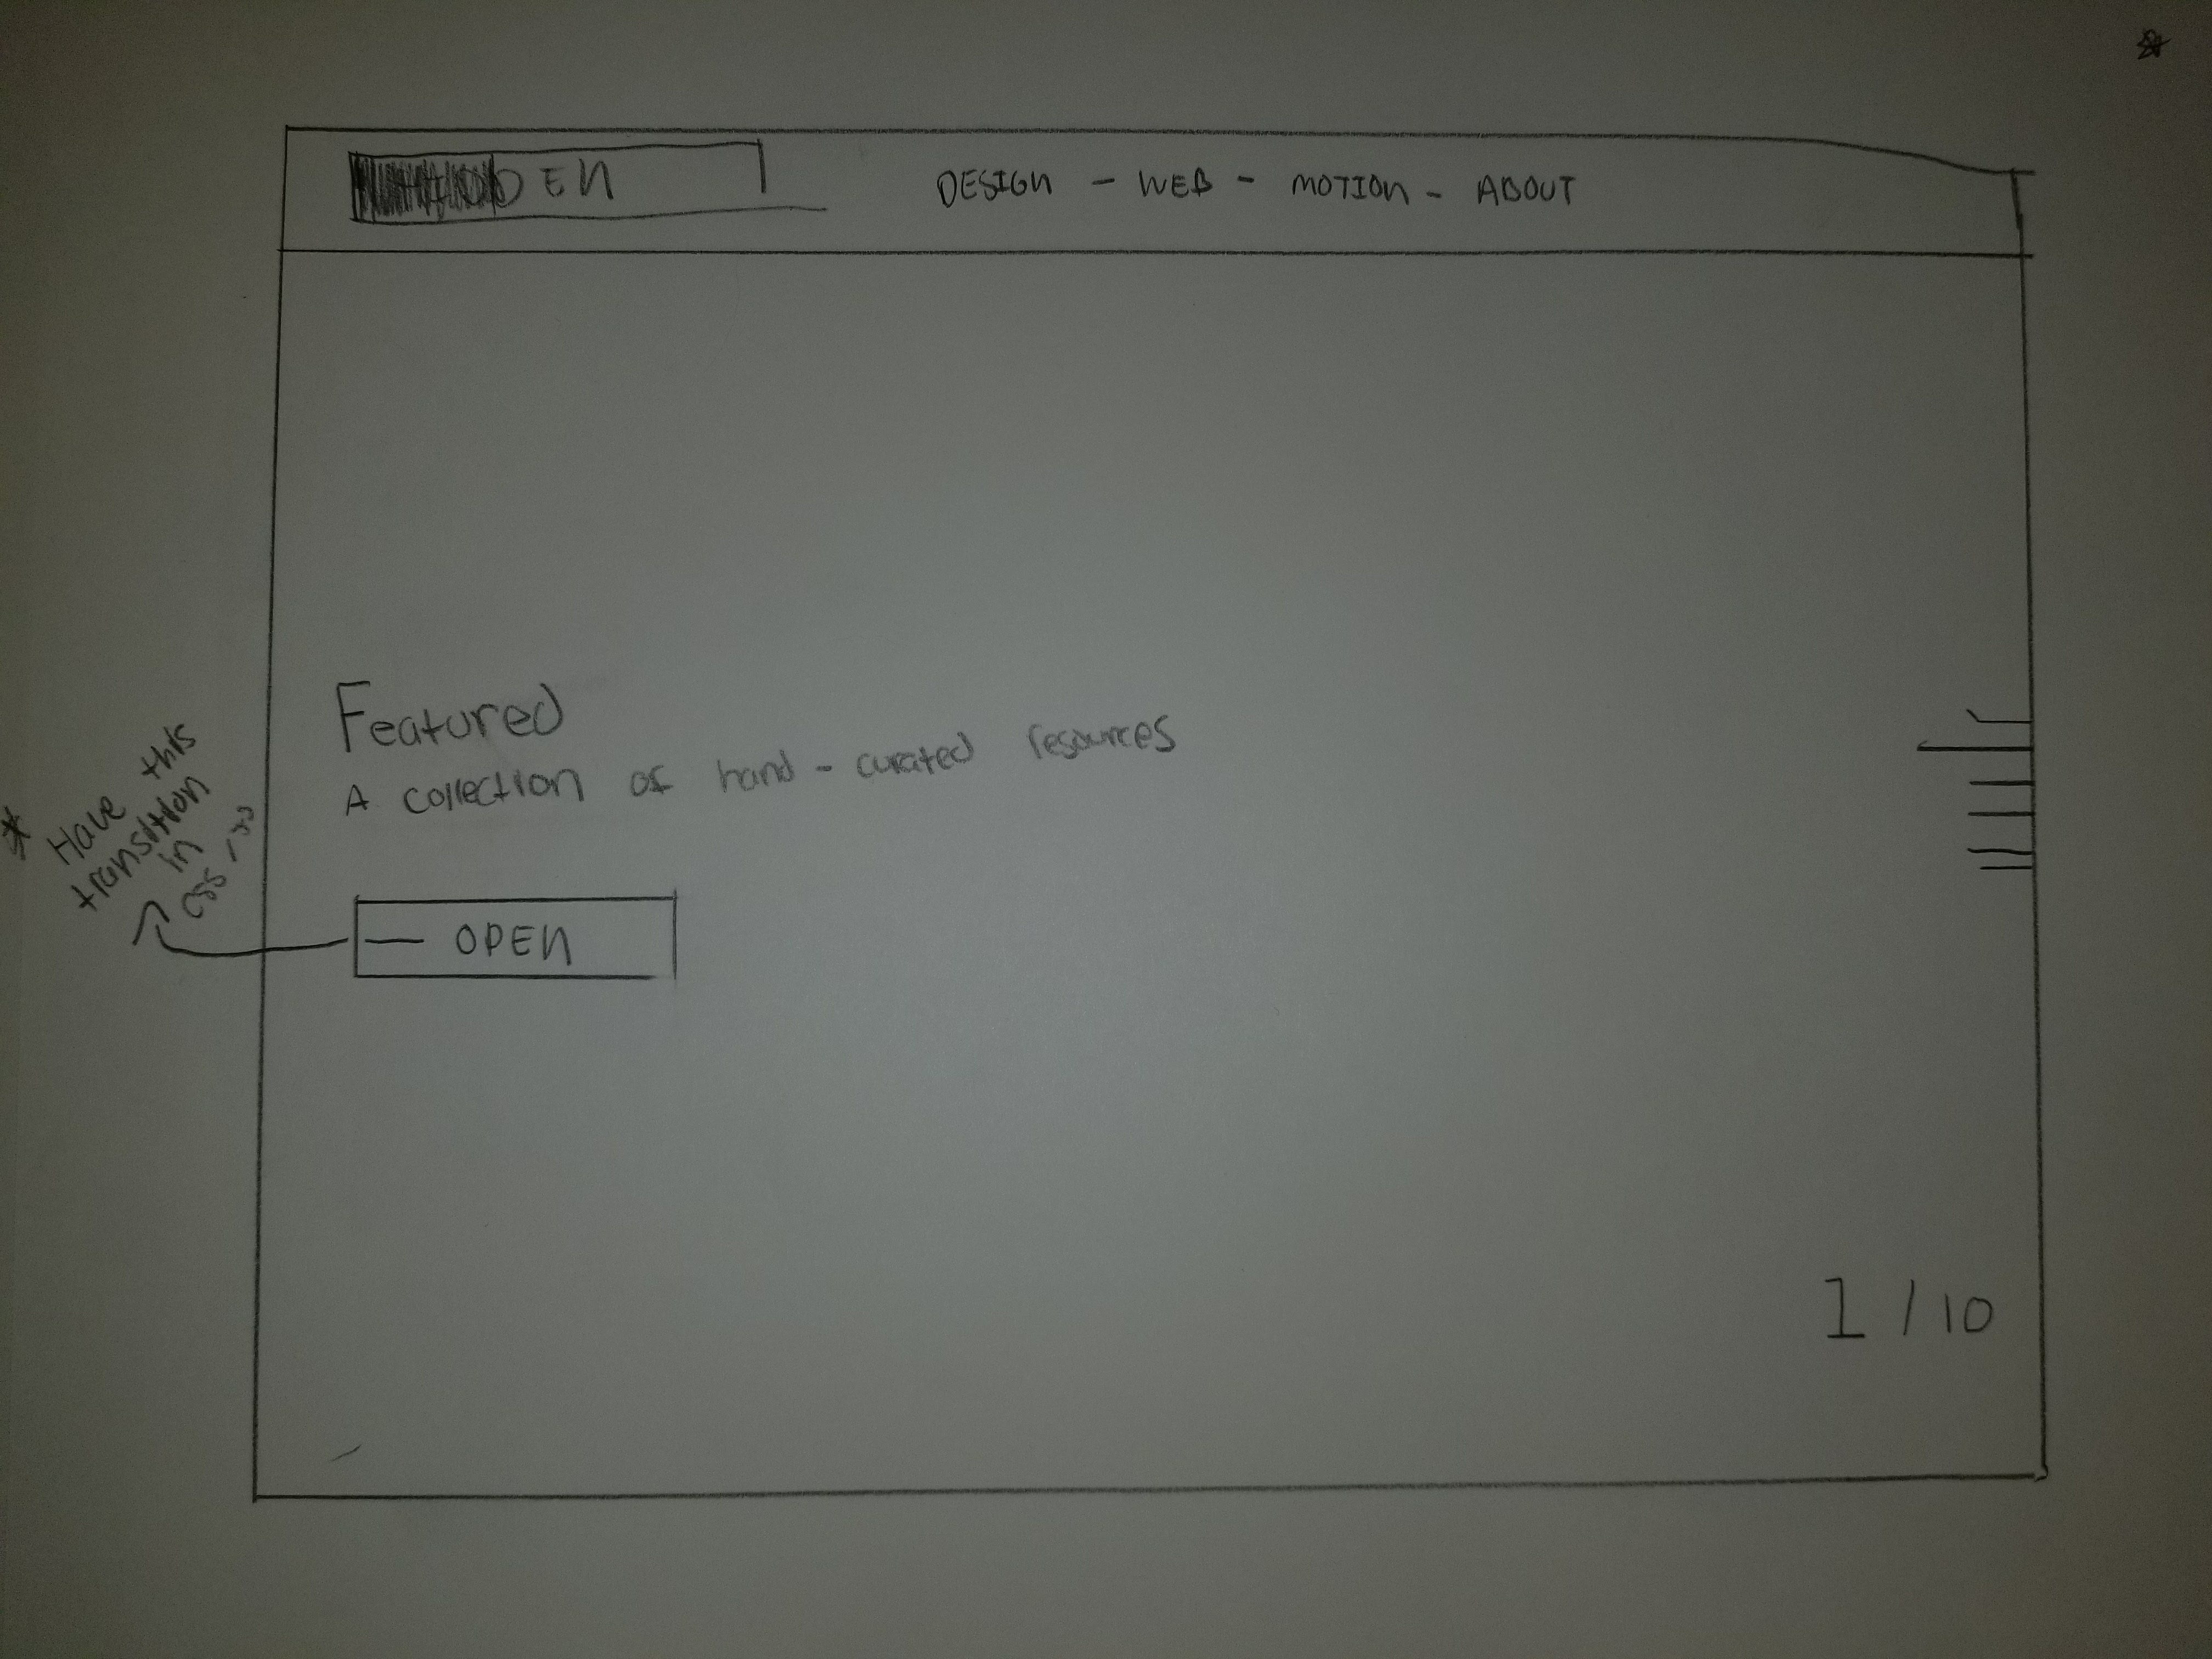 DESIGN - WEB - MOTION - ABOUT
Featured
A collection of hand-curated resources
* Have this
transition
in
css
— OPEN
1 / 10